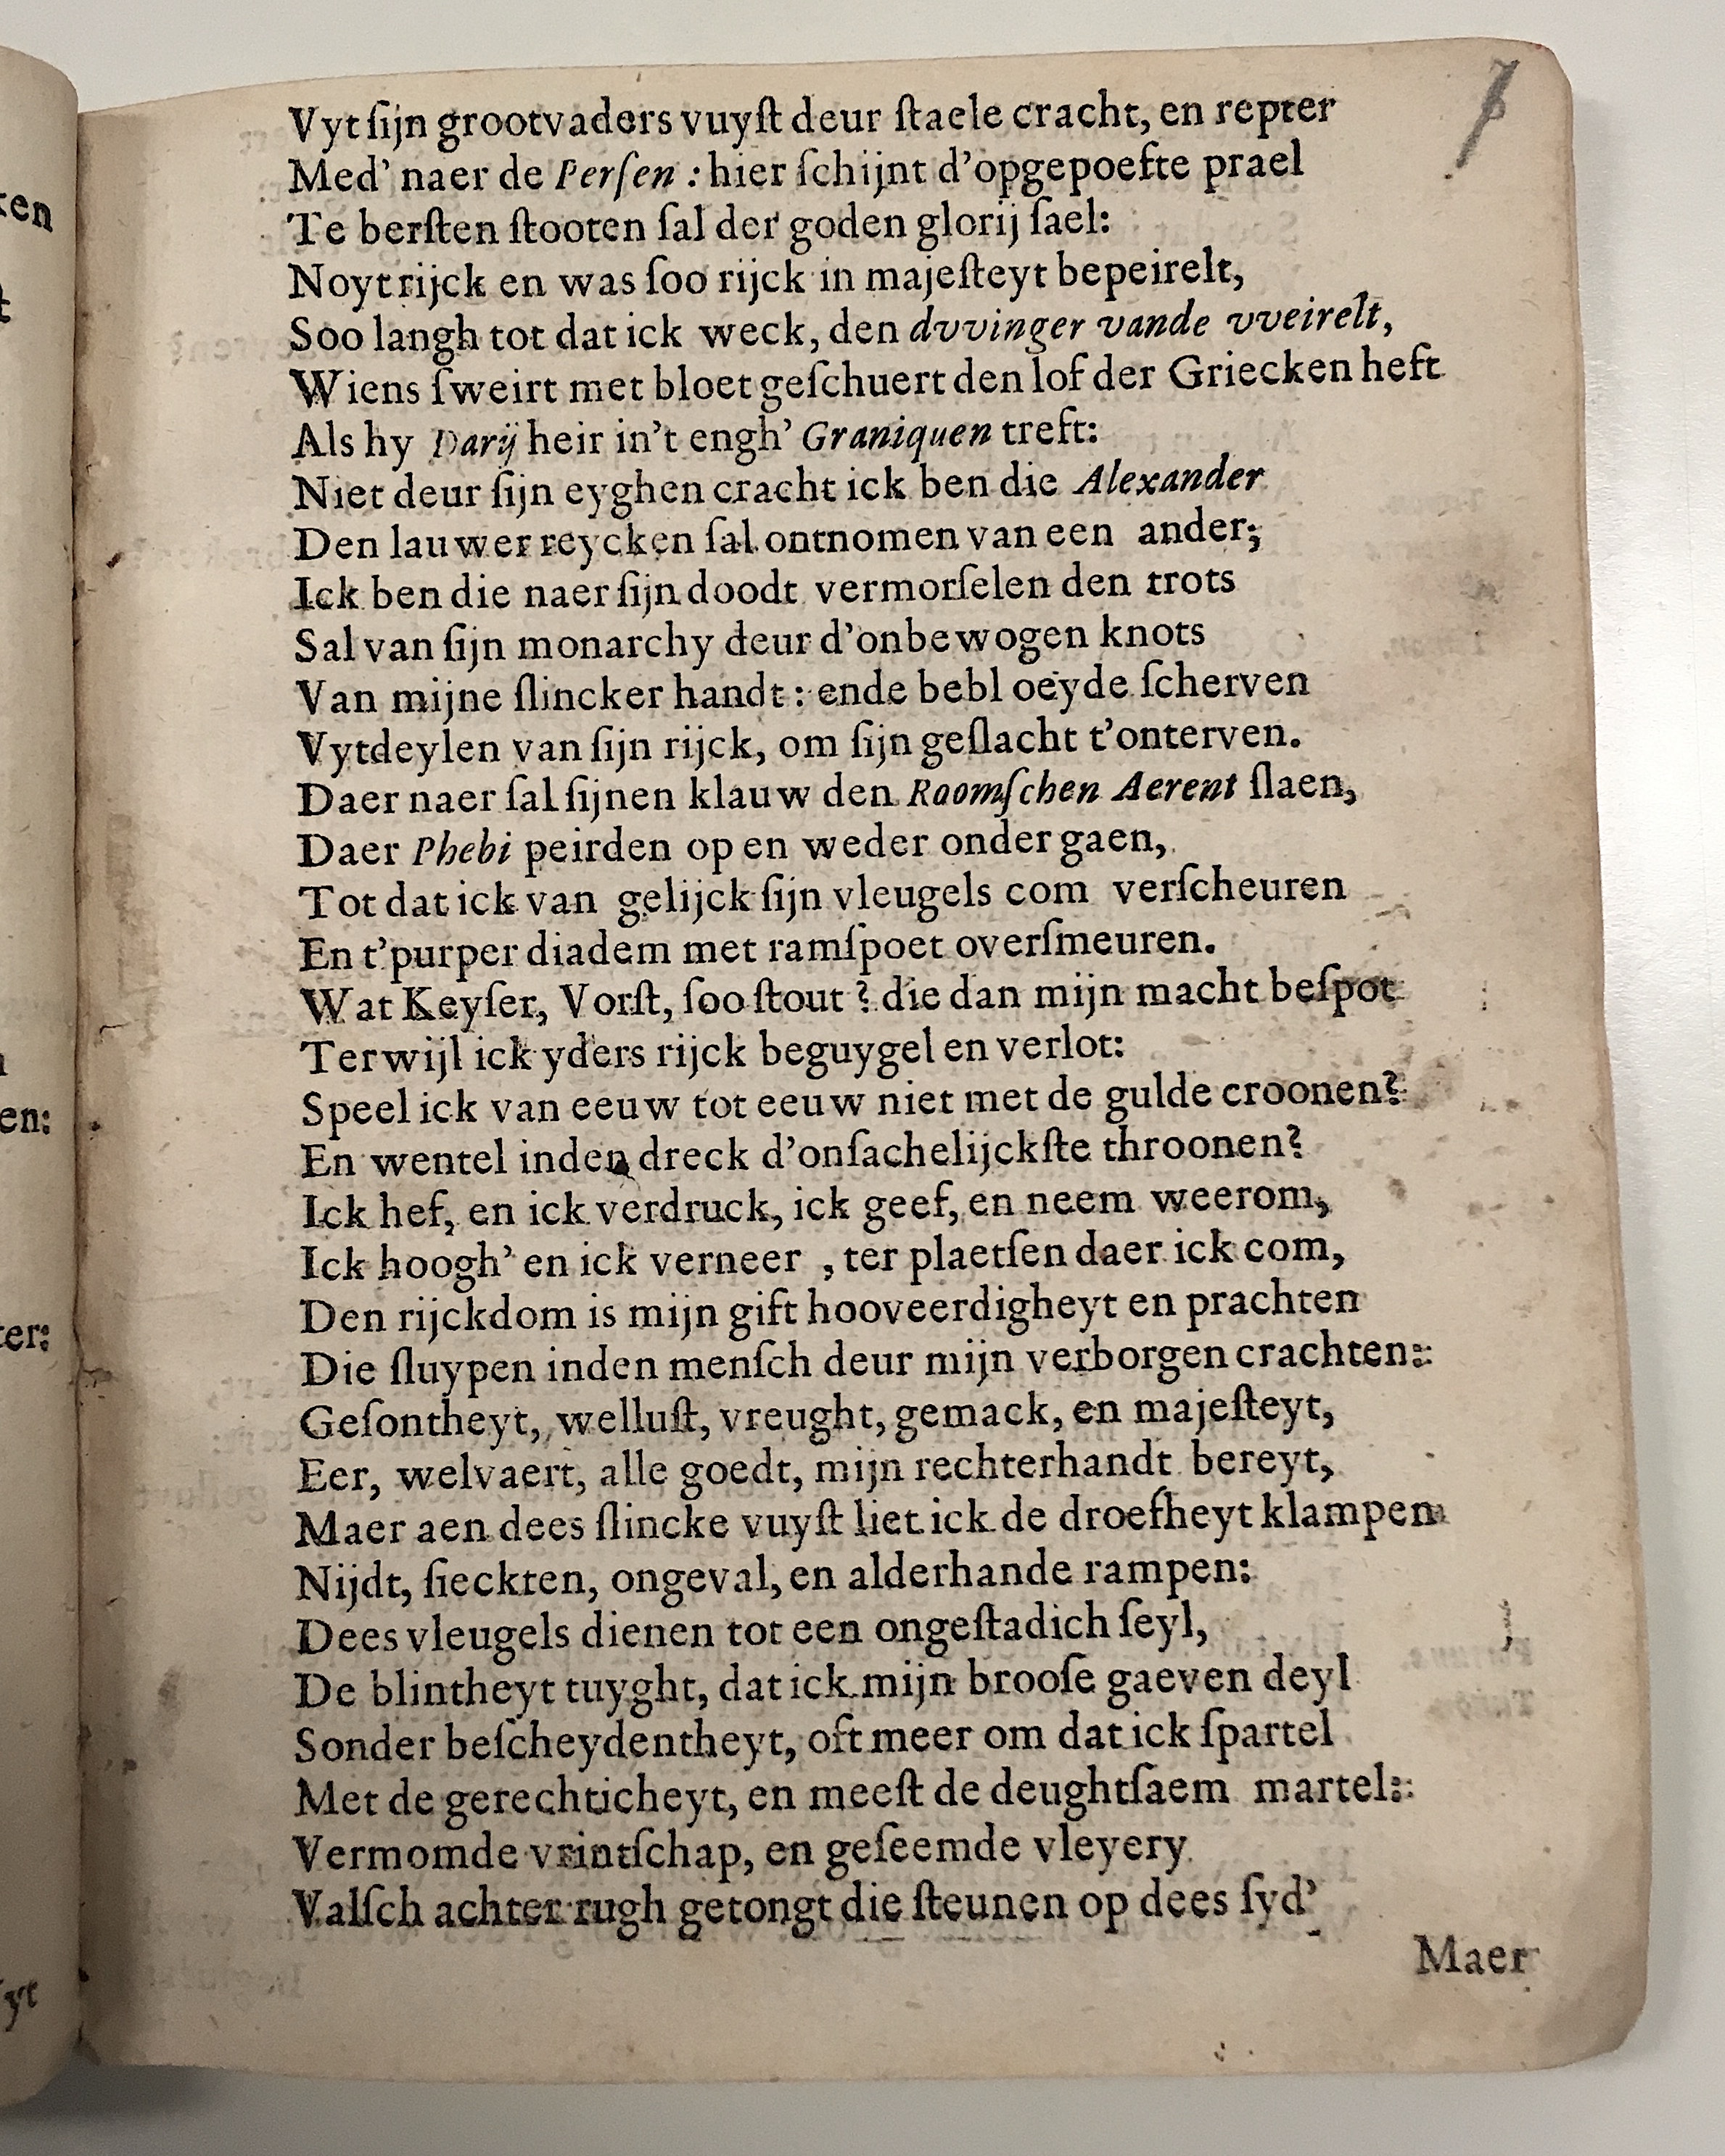 Vyt ſijn grootvaders vuyſt deur ſtaele cracht, en repter
Med' naer de Perſen : hier ſchijnt d'opgepoefte prael
Te berſten ſtooten ſal der goden glorij ſael:
Noyt rijck en was ſoo rijck in majeſteyt bepeirelt,
Soo langh tot dat ick weck, den dvvinger vande vveirelt,
Wiens ſweirt met bloet geſchuert den lof der Griecken heft
Als hy Darij heir in't engh' Graniquen treft:
Niet deur ſijn eyghen cracht ick ben die Alexander
Den lauwer reycken ſal ontnomen van een ander;
Ick ben die naer ſijn doodt vermorſelen den trots
Sal van ſijn monarchy deur d'onbewogen knots
Van mijne ſlincker handt : ende bebloeyde ſcherven
Vytdeylen van ſijn rijck, om ſijn geſlacht t'onterven.
Daer naer ſal ſijnen klauw den Roomſchen Aerent ſlaen,
Daer Phebi peirden op en weder onder gaen,
Tot dat ick van gelijck ſijn vleugels com verſcheuren
En t'purper diadem met ramſpoet overſmeuren.
Wat Keyſer, Vorſt, ſoo ſtout ? die dan mijn macht beſpot
Terwijl ick yders rijck beguygel en verlot:
Speel ick van eeuw tot eeuw niet met de gulde croonen?
En wentel inden dreck d'onſachelijckſte throonen?
Ick hef, en ick verdruck, ick geef, en neem weerom,
Ick hoogh' en ick verneer , ter plaetſen daer ick com,
Den rijckdom is mijn gift hooveerdigheyt en prachten
Die ſluypen inden menſch deur mijn verborgen crachten:
Geſontheyt, welluſt, vreught, gemack, en majeſteyt,
Eer, welvaert, alle goedt, mijn rechterhandt bereyt,
Maer aen dees ſlincke vuyſt liet ick de droefheyt klampen
Nijdt, ſieckten, ongeval, en alderhande rampen:
Dees vleugels dienen tot een ongeſtadich ſeyl,
De blintheyt tuyght, dat ick mijn brooſe gaeven deyl
Sonder beſcheydentheyt, oft meer om dat ick ſpartel
Met de gerechticheyt, en meeſt de deughtſaem martel:
Vermomde vrintſchap, en geſeemde vleyery
Valſch achter rugh getongt die ſteunen op dees ſyd'
Maer